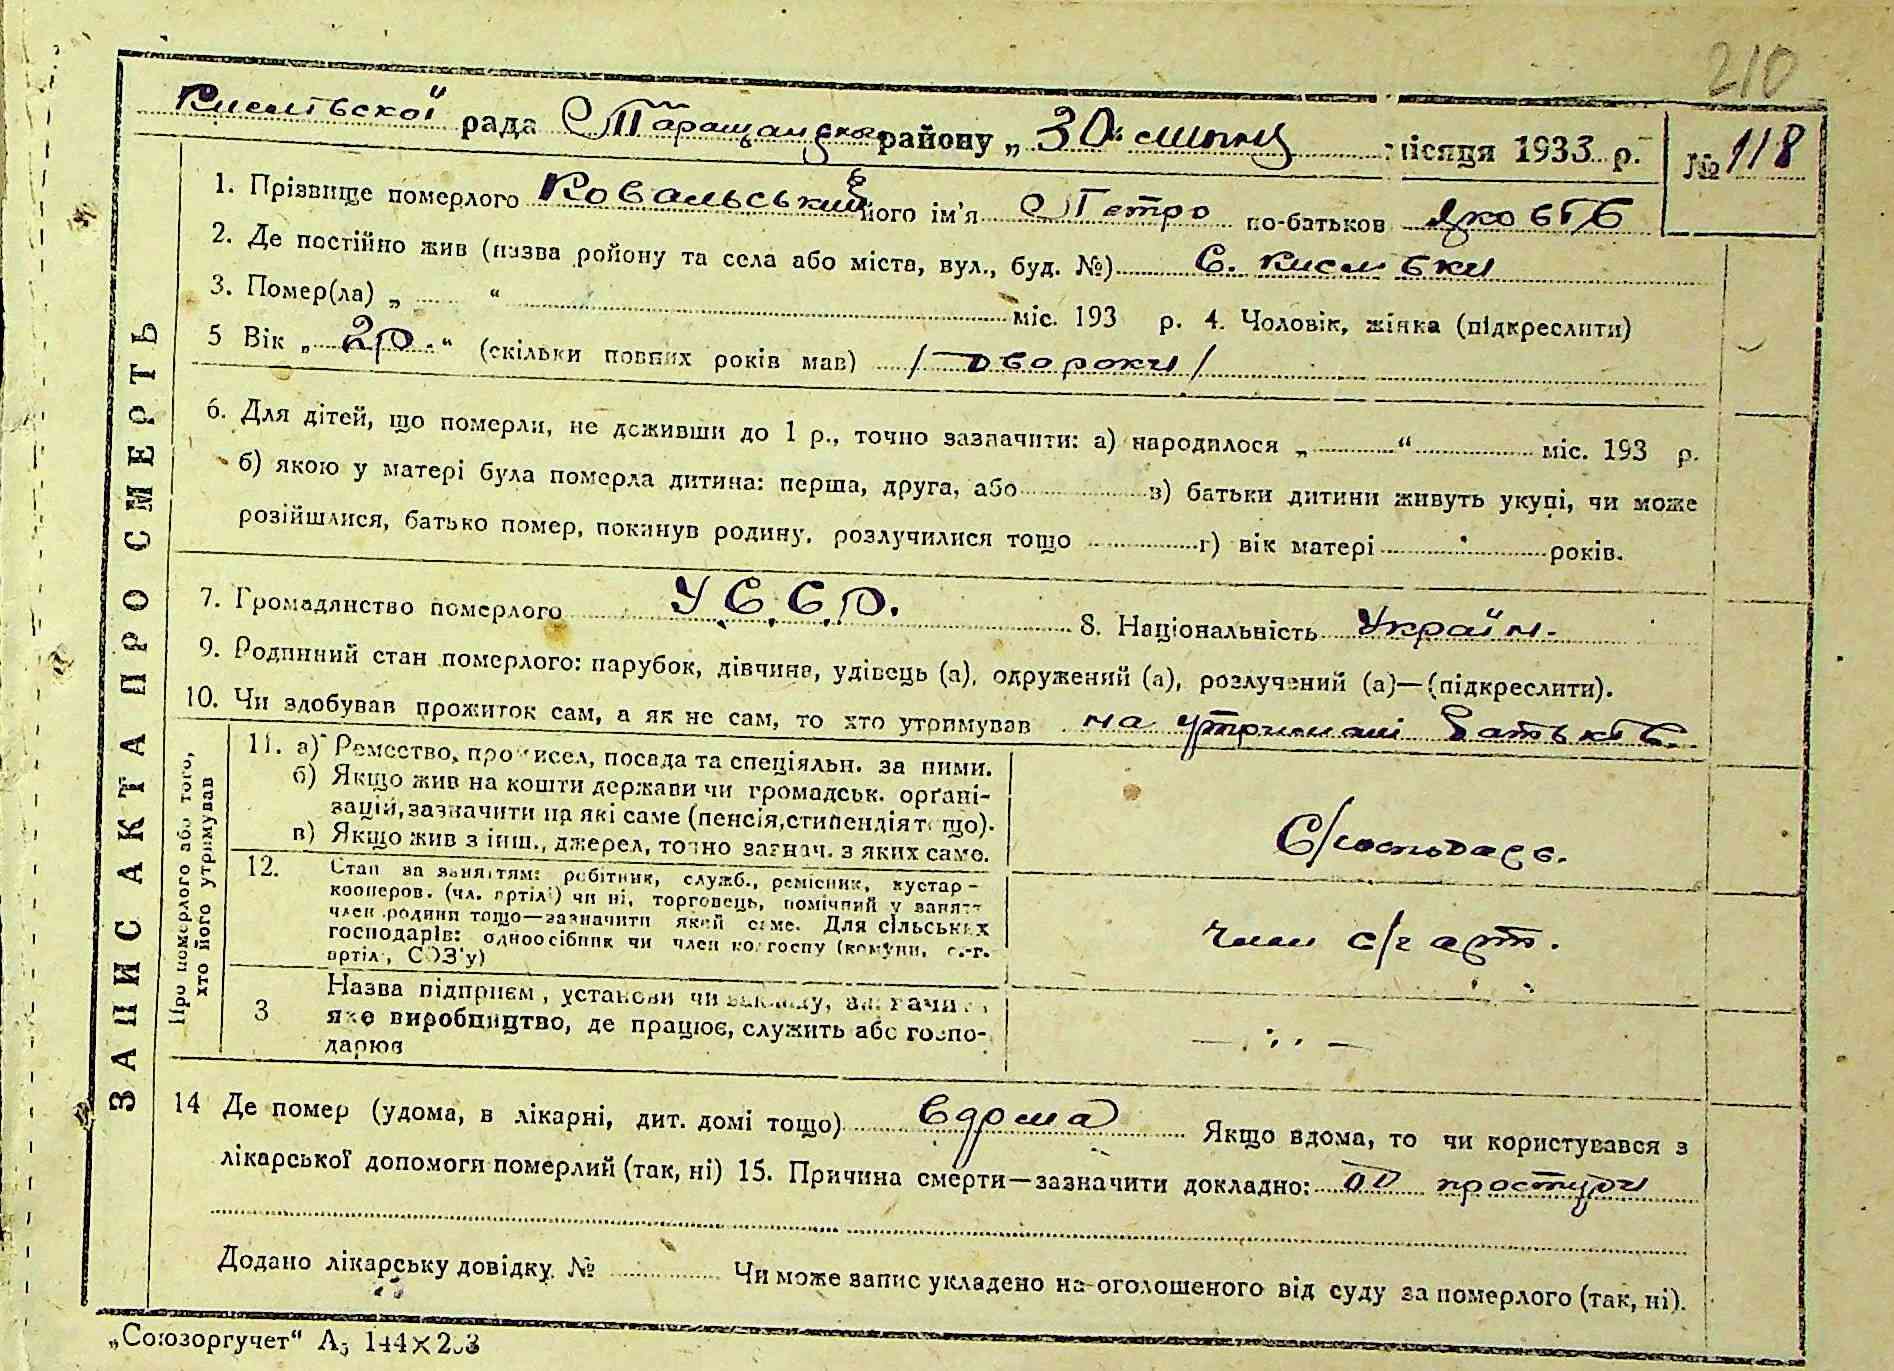 210
Кислівської рада Таращанськ району „30" липня місяця 1933 р. № 118
1. Прізвище померлого Ковальський його ім'я Петро по-батьков Яковів
2. Де постійно жив (назва району та села або міста, вул., буд. №) С. Кислівки
3. Помер(ла) „ “ міс. 193 р. 4. Чоловік, жінка (підкреслити)
5 Вік „ 2р. “ (скільки повних років мав) /два роки/
6. Для дітей, що померли, не доживши до 1 р., точно зазначити: а) народилося „ “ міс. 193 р.
б) якою у матері була померла дитина: перша, друга, або в) батьки дитини живуть укупі, чи може
розійшлися, батько помер, покинув родину, розлучилися тощо г) вік матері років.
7. Громадянство померлого У.С.С.Р. 8. Національність Україн.
9. Родинний стан померлого: парубок, дівчина, удівець (а), одружений (а), розлучений (а)—(підкреслити).
10. Чи здобував прожиток сам, а як не сам, то хто утримував на утримані батьків.
ЗАПИС АКТА ПРО СМЕРТЬ
Про померлого або того,
хто його утримував
11. а) Ремество, промисел, посада та спеціяльн. за ними.
б) Якщо жив на кошти держави чи громадськ. органі-
зацій, зазначити на які саме (пенсія, стипендія тощо).
в) Якщо жив з інш., джерел, точно зазнач. з яких само.
С/господарс.
12. Стан за заняттям: робітник, служб., ремісник, кустар-
кооперов. (чл. артілі) чи ні, торговець, помічний у занятт
член родини тощо—зазначити який саме. Для сільських
господарів: одноосібник чи член колгоспу (комуни, с.-г.
артілі, СОЗ'у)
член с/г арт.
3 Назва підприєм, установи чи закладу, зазначити
яке виробництво, де працює, служить або госпо-
дарює
14 Де помер (удома, в лікарні, дит. домі тощо) вдома Якщо вдома, то чи користувався з
лікарської допомоги померлий (так, ні) 15. Причина смерти—зазначити докладно: од простуди
Додано лікарську довідку № Чи може запис укладено на оголошеного від суду за померлого (так, ні).
„Союзоргучет“ А5 144×203